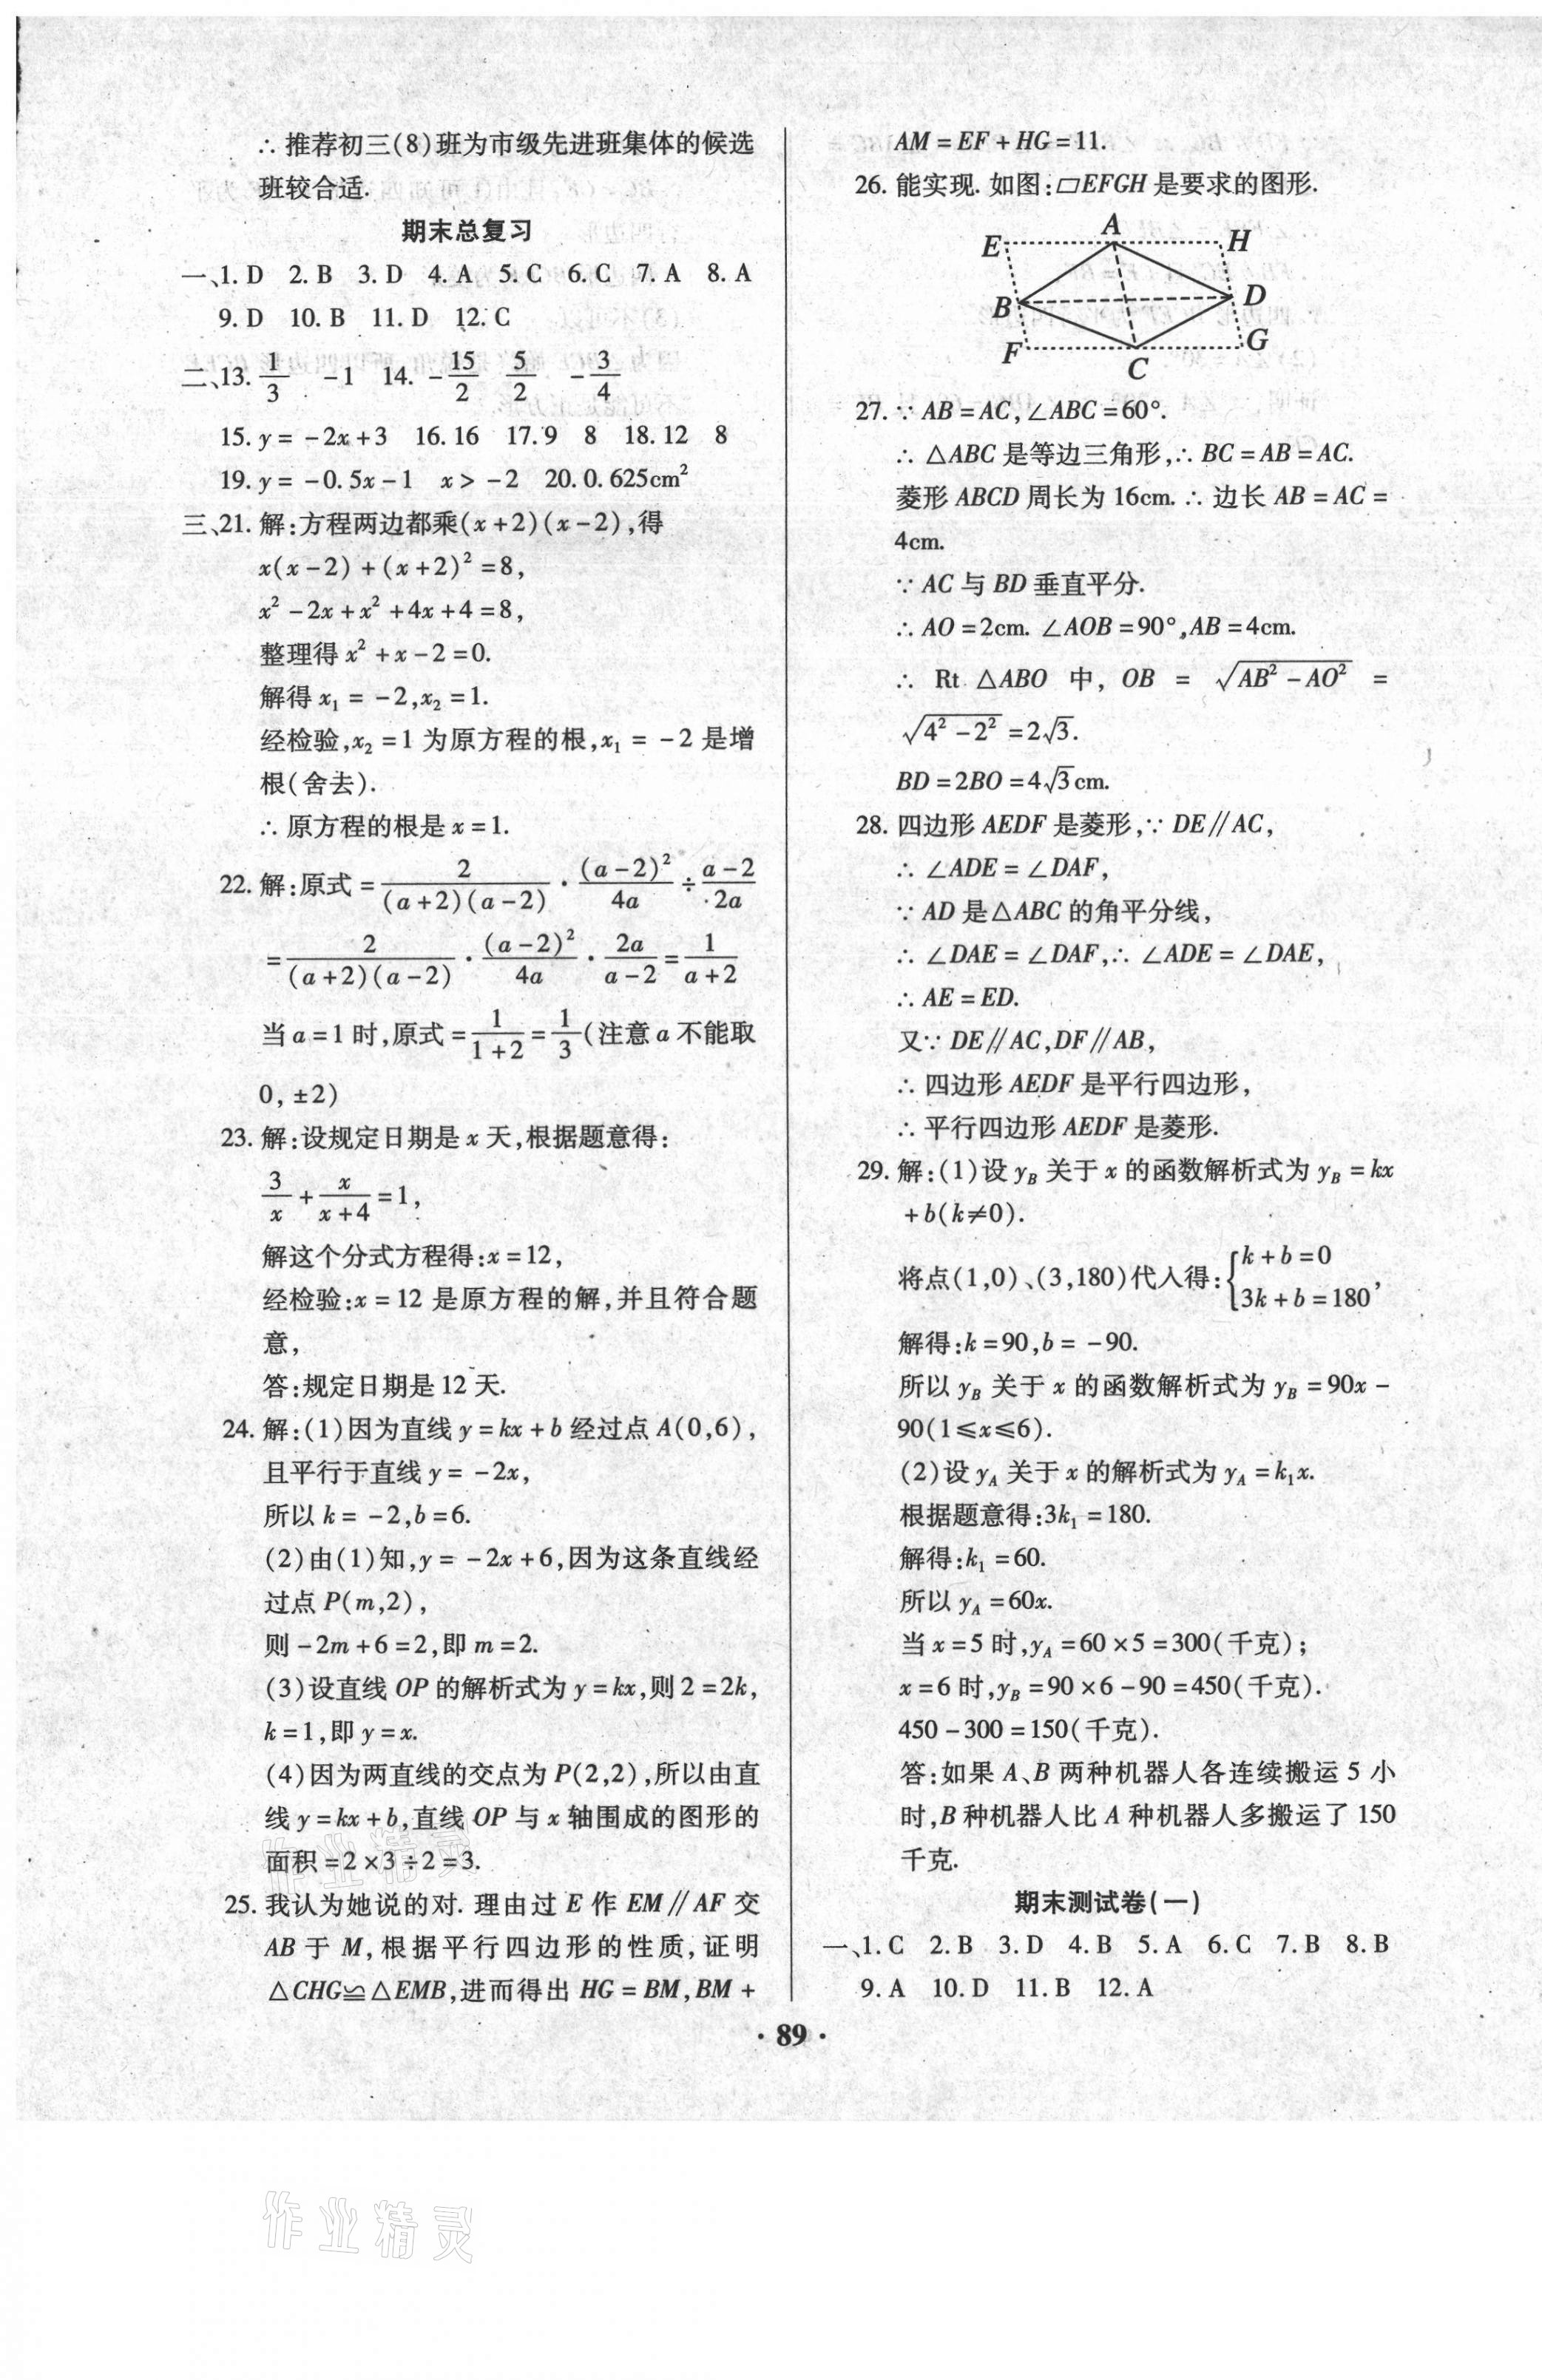 ∴ 推荐初三(8)班为市级先进班集体的候选
班较合适.
期末总复习
一、1. D 2. B 3. D 4. A 5. C 6. C 7. A 8. A
9. D 10. B 11. D 12. C
二、13. 1/3 -1 14. -15/2 5/2 -3/4
15. y = -2x+3 16. 16 17. 9 8 18. 12 8
19. y = -0.5x-1 x> -2 20. 0.625cm²
三、21. 解:方程两边都乘(x+2)(x-2),得
x(x-2)+(x+2)²=8,
x²-2x+x²+4x+4=8,
整理得 x²+x-2=0.
解得 x₁= -2,x₂=1.
经检验,x₂=1 为原方程的根,x₁= -2 是增
根(舍去).
∴ 原方程的根是 x=1.
22. 解:原式=2/((a+2)(a-2))·(a-2)²/4a÷(a-2)/2a
=2/((a+2)(a-2))·(a-2)²/4a·2a/(a-2)=1/(a+2)
当 a=1 时,原式=1/(1+2)=1/3(注意 a 不能取
0, ±2)
23. 解:设规定日期是 x 天,根据题意得:
3/x+x/(x+4)=1,
解这个分式方程得:x=12,
经检验:x=12 是原方程的解,并且符合题
意,
答:规定日期是 12 天.
24. 解:(1)因为直线 y=kx+b 经过点 A(0,6),
且平行于直线 y= -2x,
所以 k= -2,b=6.
(2)由(1)知,y= -2x+6,因为这条直线经
过点 P(m,2),
则 -2m+6=2,即 m=2.
(3)设直线 OP 的解析式为 y=kx,则 2=2k,
k=1,即 y=x.
(4)因为两直线的交点为 P(2,2),所以由直
线 y=kx+b,直线 OP 与 x 轴围成的图形的
面积=2×3÷2=3.
25. 我认为她说的对. 理由过 E 作 EM∥AF 交
AB 于 M,根据平行四边形的性质,证明
△CHG≌△EMB,进而得出 HG=BM,BM+
AM=EF+HG=11.
26. 能实现. 如图:▱EFGH 是要求的图形.
A
E H
B D
F G
C
27. ∵ AB=AC,∠ABC=60°.
∴ △ABC 是等边三角形,∴ BC=AB=AC.
菱形 ABCD 周长为 16cm. ∴ 边长 AB=AC=
4cm.
∵ AC 与 BD 垂直平分.
∴ AO=2cm. ∠AOB=90°,AB=4cm.
∴ Rt △ABO 中, OB = √(AB²-AO²) =
√(4²-2²)=2√3.
BD=2BO=4√3cm.
28. 四边形 AEDF 是菱形,∵ DE∥AC,
∴ ∠ADE=∠DAF,
∵ AD 是△ABC 的角平分线,
∴ ∠DAE=∠DAF,∴ ∠ADE=∠DAE,
∴ AE=ED.
又∵ DE∥AC,DF∥AB,
∴ 四边形 AEDF 是平行四边形,
∴ 平行四边形 AEDF 是菱形.
29. 解:(1)设 y_B 关于 x 的函数解析式为 y_B=kx
+b(k≠0).
将点(1,0)、(3,180)代入得:{k+b=0
3k+b=180,
解得:k=90,b= -90.
所以 y_B 关于 x 的函数解析式为 y_B=90x-
90(1≤x≤6).
(2)设 y_A 关于 x 的解析式为 y_A=k₁x.
根据题意得:3k₁=180.
解得:k₁=60.
所以 y_A=60x.
当 x=5 时,y_A=60×5=300(千克);
x=6 时,y_B=90×6-90=450(千克).
450-300=150(千克).
答:如果 A、B 两种机器人各连续搬运 5 小
时,B 种机器人比 A 种机器人多搬运了 150
千克.
期末测试卷(一)
一、1. C 2. B 3. D 4. B 5. A 6. C 7. B 8. B
9. A 10. D 11. B 12. A
· 89 ·
作业精灵
作业精灵